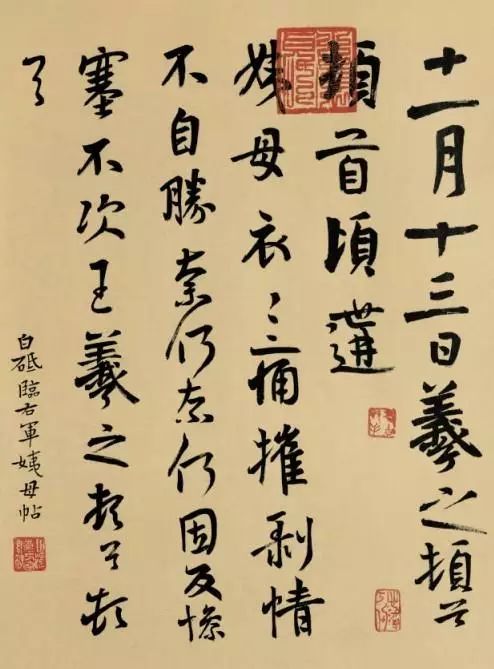 十一月十三日羲之頓首
頓首頃遘
姨母哀〻痛摧剥情
不自勝奈何奈何因反慘
塞不次王羲之頓首頓
首
白砥臨右軍姨母帖